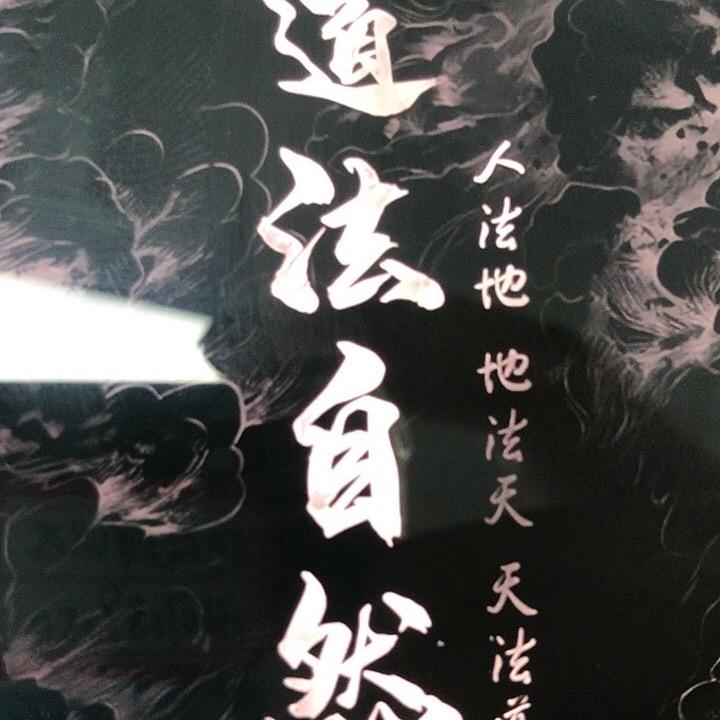 人法地 地法天 天法道
道法自然